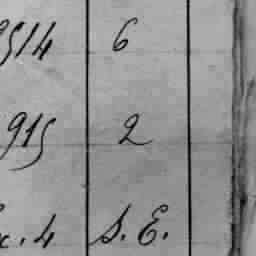 1514 6
915 2
c. 4 S. E.